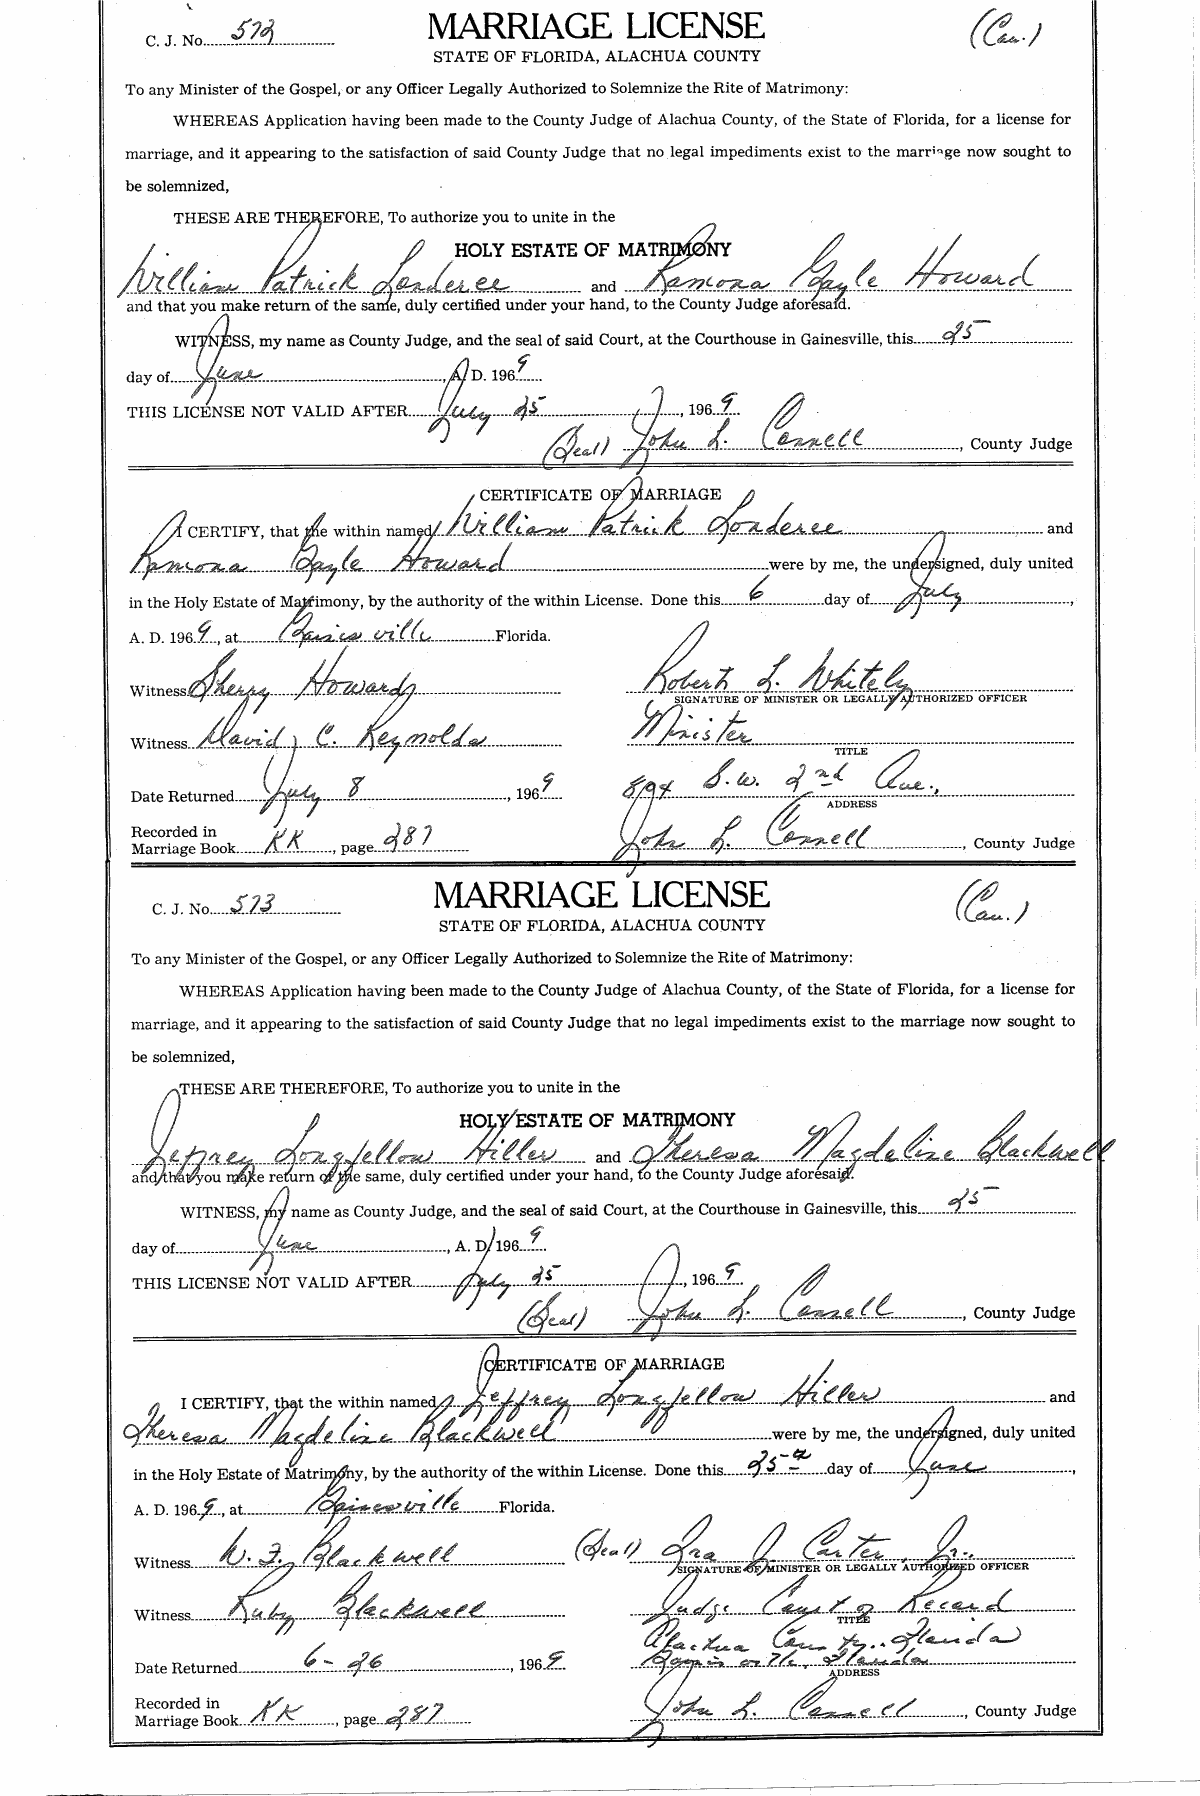 C. J. No. 572 MARRIAGE LICENSE (Cau.)
STATE OF FLORIDA, ALACHUA COUNTY
To any Minister of the Gospel, or any Officer Legally Authorized to Solemnize the Rite of Matrimony:
WHEREAS Application having been made to the County Judge of Alachua County, of the State of Florida, for a license for
marriage, and it appearing to the satisfaction of said County Judge that no legal impediments exist to the marriage now sought to
be solemnized,
THESE ARE THEREFORE, To authorize you to unite in the
HOLY ESTATE OF MATRIMONY
William Patrick Londeree and Ramona Gayle Howard
and that you make return of the same, duly certified under your hand, to the County Judge aforesaid.
WITNESS, my name as County Judge, and the seal of said Court, at the Courthouse in Gainesville, this 25
day of June, A. D. 1969
THIS LICENSE NOT VALID AFTER July 25, 1969
(Seal) John L. Connell, County Judge
CERTIFICATE OF MARRIAGE
I CERTIFY, that the within named William Patrick Londeree and
Ramona Gayle Howard were by me, the undersigned, duly united
in the Holy Estate of Matrimony, by the authority of the within License. Done this 6 day of July,
A. D. 1969, at Gainesville Florida.
Witness Sherry Howard Robert L. Whitely
SIGNATURE OF MINISTER OR LEGALLY AUTHORIZED OFFICER
Witness David C. Reynolds Minister
TITLE
Date Returned July 8, 1969 894 S.W. 2nd Ave.,
ADDRESS
Recorded in
Marriage Book KK, page 287 John L. Connell, County Judge
C. J. No. 573 MARRIAGE LICENSE (Cau.)
STATE OF FLORIDA, ALACHUA COUNTY
To any Minister of the Gospel, or any Officer Legally Authorized to Solemnize the Rite of Matrimony:
WHEREAS Application having been made to the County Judge of Alachua County, of the State of Florida, for a license for
marriage, and it appearing to the satisfaction of said County Judge that no legal impediments exist to the marriage now sought to
be solemnized,
THESE ARE THEREFORE, To authorize you to unite in the
HOLY ESTATE OF MATRIMONY
Jeffrey Longfellow Hiller and Theresa Magdeline Blackwell
and that you make return of the same, duly certified under your hand, to the County Judge aforesaid.
WITNESS, my name as County Judge, and the seal of said Court, at the Courthouse in Gainesville, this 25
day of June, A. D. 1969
THIS LICENSE NOT VALID AFTER July 25, 1969
(Seal) John L. Connell, County Judge
CERTIFICATE OF MARRIAGE
I CERTIFY, that the within named Jeffrey Longfellow Hiller and
Theresa Magdeline Blackwell were by me, the undersigned, duly united
in the Holy Estate of Matrimony, by the authority of the within License. Done this 25th day of June,
A. D. 1969, at Gainesville Florida.
Witness W. F. Blackwell (Seal) Ira J. Carter, Jr.,
SIGNATURE OF MINISTER OR LEGALLY AUTHORIZED OFFICER
Witness Ruby Blackwell Judge Court of Record
TITLE
Alachua County, Florida
Date Returned 6-26, 1969 Gainesville, Florida
ADDRESS
Recorded in
Marriage Book KK, page 287 John L. Connell, County Judge